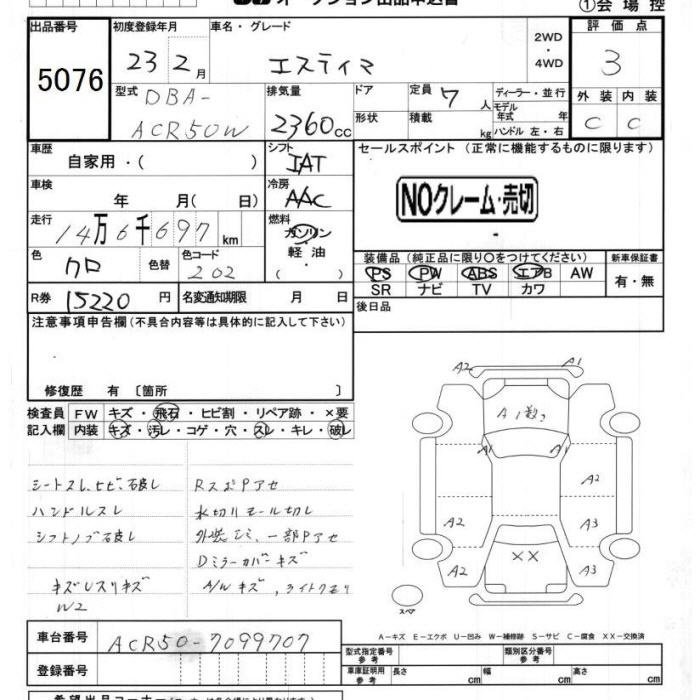 オークション出品申込書
①会 場 控
出品番号 初度登録年月 車名・グレード 2WD・4WD 評 価 点
5076 23 2月 エスティマ 3
型式 排気量 ドア 定員 ディーラー・並行 外 装 内 装
DBA-ACR50W 2360cc 7人 モデル年式 年 C C
形状 積載 kg ハンドル 左・右
車歴 シフト セールスポイント (正常に機能するものに限ります)
自家用・( ) IAT
車検 冷房
年 月( 日) AAC NOクレーム・売切
走行 燃料
14万6千697km ガソリン・軽 油・( )
色 色替 色コード 装備品 (純正品に限り○をつけてください) 新車保証書
クロ 202 PS PW ABS エアB AW 有・無
SR ナビ TV カワ
R券 15220円 名変通知期限 月 日 後日品
注意事項申告欄 (不具合内容等は具体的に記入して下さい)
修復歴 有 〔箇所 〕
検査員 FW キズ・飛石・ヒビ割・リペア跡・×要
記入欄 内装 キズ・汚レ・コゲ・穴・スレ・キレ・破レ
シートスレ、ヒビ、破レ
ハンドルスレ
シフトノブ破レ
キズレスリキズ
W2
RスポPアセ
水切リモール切レ
外装ヒビ、一部Pアセ
Dミラーカバーキズ
A/Wキズ、ライトクモリ
A2 A1
A1数コ
A1 A1
A2
A2 A3
××
A2 A3
スペア
A-キズ E-エクボ U-凹み W-補修跡 S-サビ C-腐食 XX-交換済
車台番号 ACR50-7099707
型式指定番号 参考 類別区分番号 参考
登録番号 車庫証明用 参考 長さ cm 幅 cm 高さ cm